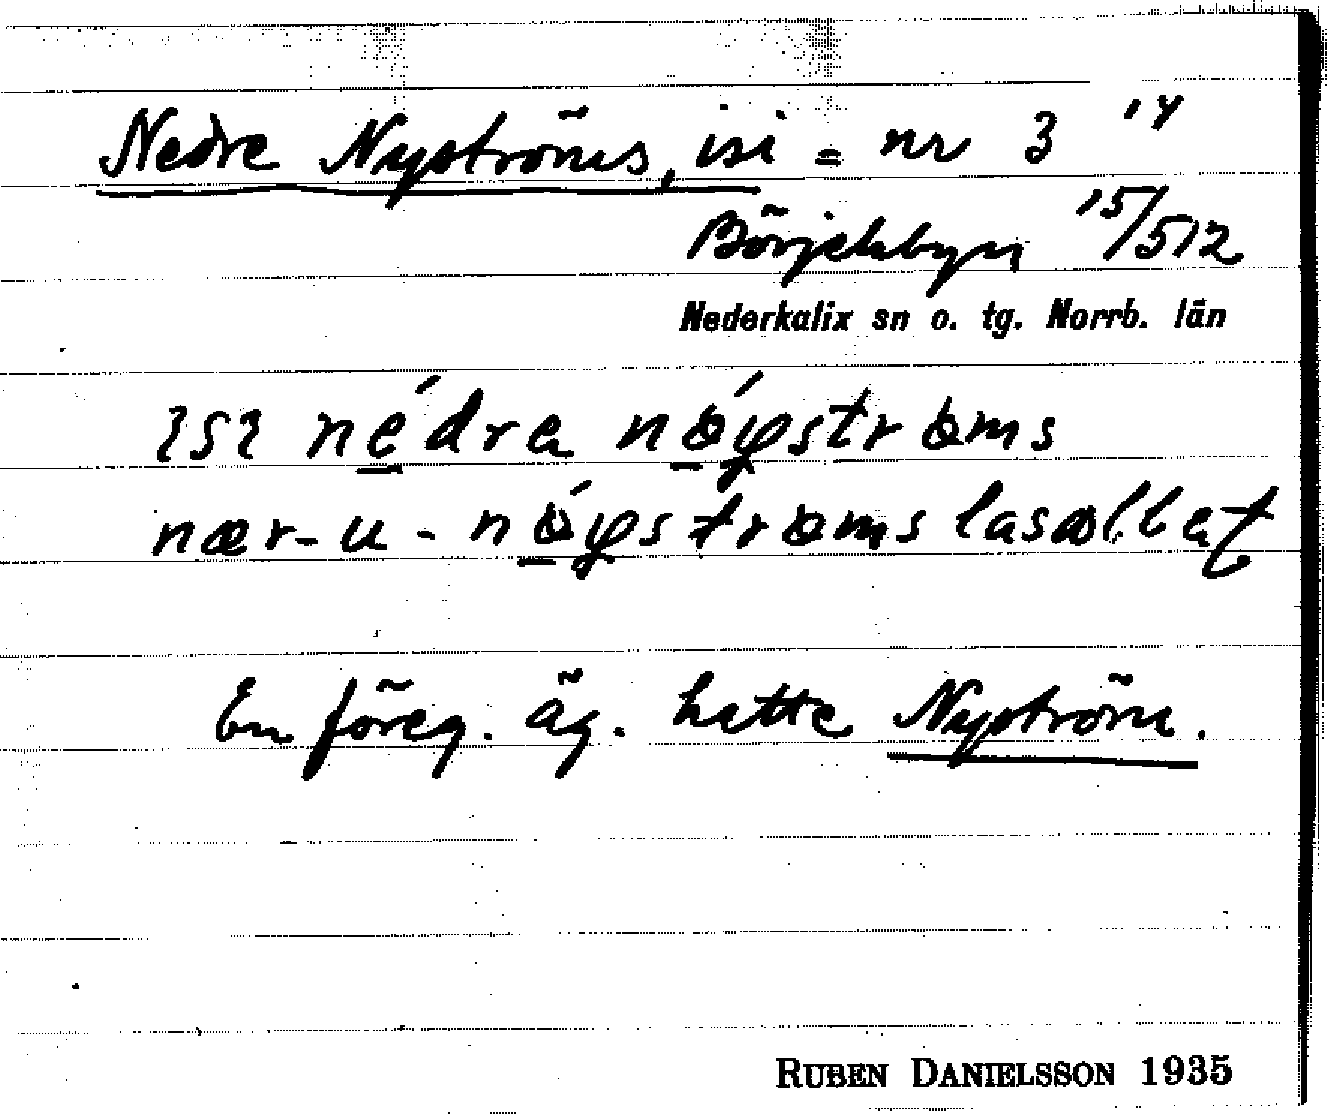 Nedre Nyströms, isi = nr 3 14
Börjelsbyn 15/512
Nederkalix sn o. tg. Norrb. län
ɩsɩ nédra nǿyströms
nær-u- nǿyströms
En föreg. äg. hette Nyström.
RUBEN DANIELSSON 1935